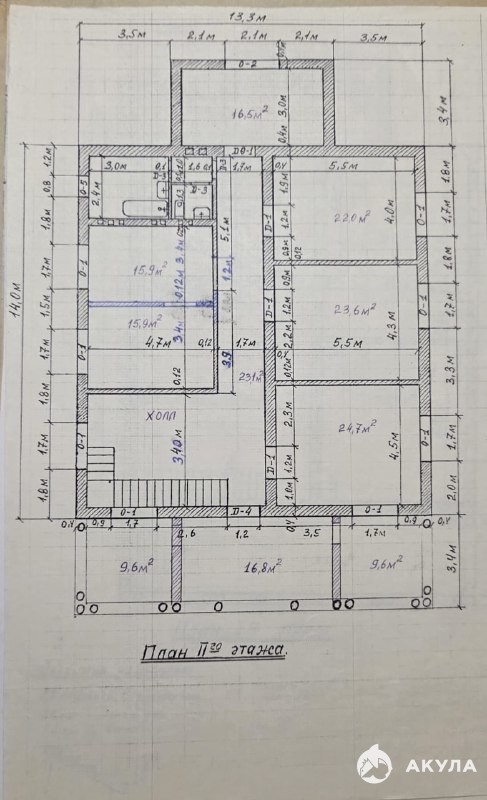 13,3м
3,5м 2,1м 2,1м 2,1м 3,5м
О-2
16,5м²
3,0м
0,4м
3,4м
14,0м
1,2м
0,8
1,8м
1,7м
1,5м
1,7м
1,8м
1,7м
1,8м
О-5
О-1
О-1
О-1
3,0м 0,1
Д-3
2,4м
1,6 0,1
Д-3
ДО-1
1,7м
5,1м
0,4
5,5м
1,9м
1,2м
0,9м
Д-1
22,0м²
4,0м
О-1
1,8м
1,7м
1,8м
0,12
15,9м²
0,12м
15,9м²
3,4м
4,7м
0,12
0,12
1,2м
3,9
1,7м
23,1м²
0,9м
1,2м
2,2м
0,12м
Д-1
23,6м²
4,3м
О-1
1,7м
3,3м
0,4
5,5м
ХОЛЛ
3,40м
2,3м
1,2м
1,0м
Д-1
24,7м²
4,5м
О-1
1,7м
2,0м
О-1 Д-4 О-1
0,4 0,9 1,7 2,6 1,2 0,4 3,5 1,7м 0,9 0,4
9,6м² 16,8м² 9,6м²
3,4м
План IIго этажа.
АКУЛА